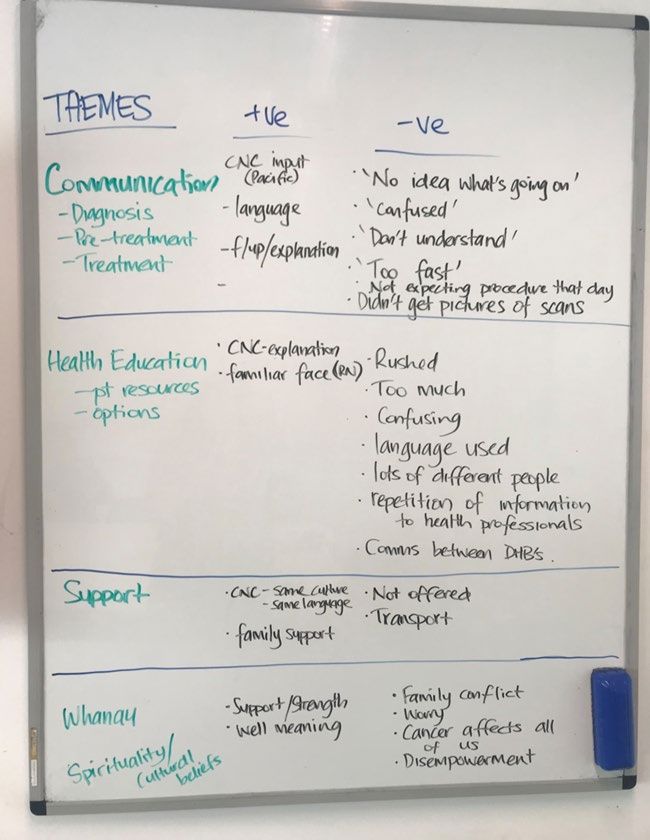 THEMES
+ve
-ve
Communication
- Diagnosis
- Pre-treatment
- Treatment
CNC input
(Pacific)
- language
- f/up/explanation
-
· 'No idea what's going on'
· 'Confused'
· 'Don't understand'
· 'Too fast'
· Not expecting procedure that day
· Didn't get pictures of scans
Health Education
- pt resources
- options
· CNC-explanation
· familiar face (RN)
· Rushed
· Too much
· Confusing
· language used
· lots of different people
· repetition of information
to health professionals
· Comms between DHB's.
Support
· CNC - same culture
- same language
· family support
· Not offered
· Transport
Whanau
Spirituality/
Cultural
beliefs
- Support/Strength
· Well meaning
· Family conflict
· Worry
· Cancer affects all
of us
· Disempowerment